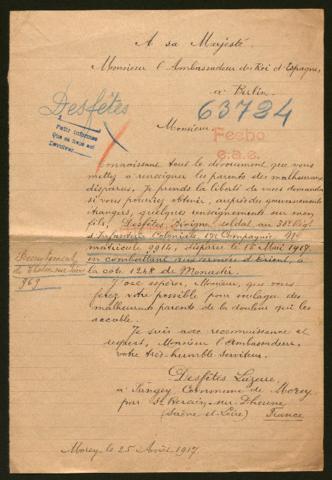 A sa Majesté
Monsieur l'Ambassadeur du Roi d'Espagne,
à Berlin.
Desfêtes
63724
Monsieur
Fecho
e.a.e.
Connaissant tout le dévouement que vous
mettez à renseigner les parents des malheureux
disparus, Je prends la liberté de vous demander
si vous pourriez obtenir, auprès des gouvernements
étrangers, quelques renseignements sur mon
fils, Desfêtes soldat au
d'Infanterie Coloniale Compagnie
matricule disparu le Mai 1917.
en combattant aux armées d'Orient, à
la côte 1248 de Monastir.
Recrutement
969
J'ose espérer, Monsieur, que vous
ferez votre possible pour soulager des
malheureux parents de la douleur qui les
accable.
Je suis avec reconnaissance et
respect, Monsieur l'Ambassadeur,
votre très humble serviteur.
Desfêtes Lazare
à Sangey Commune de Morey
par St Bérain-sur-Dheune
(Saône et Loire) France
Morey le 25 Août 1917